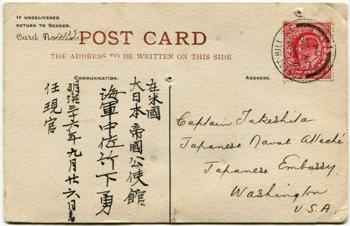 IF UNDELIVERED
RETURN TO SENDER.
Card No.
POST CARD
THE ADDRESS TO BE WRITTEN ON THIS SIDE
COMMUNICATION.
ADDRESS.
在米國
大日本帝國公使館
海軍中佐竹下勇
明治三十六年九月廿六日
任現官
Captain Takeshita
Japanese Naval Attaché
Japanese Embassy
Washington
U.S.A.